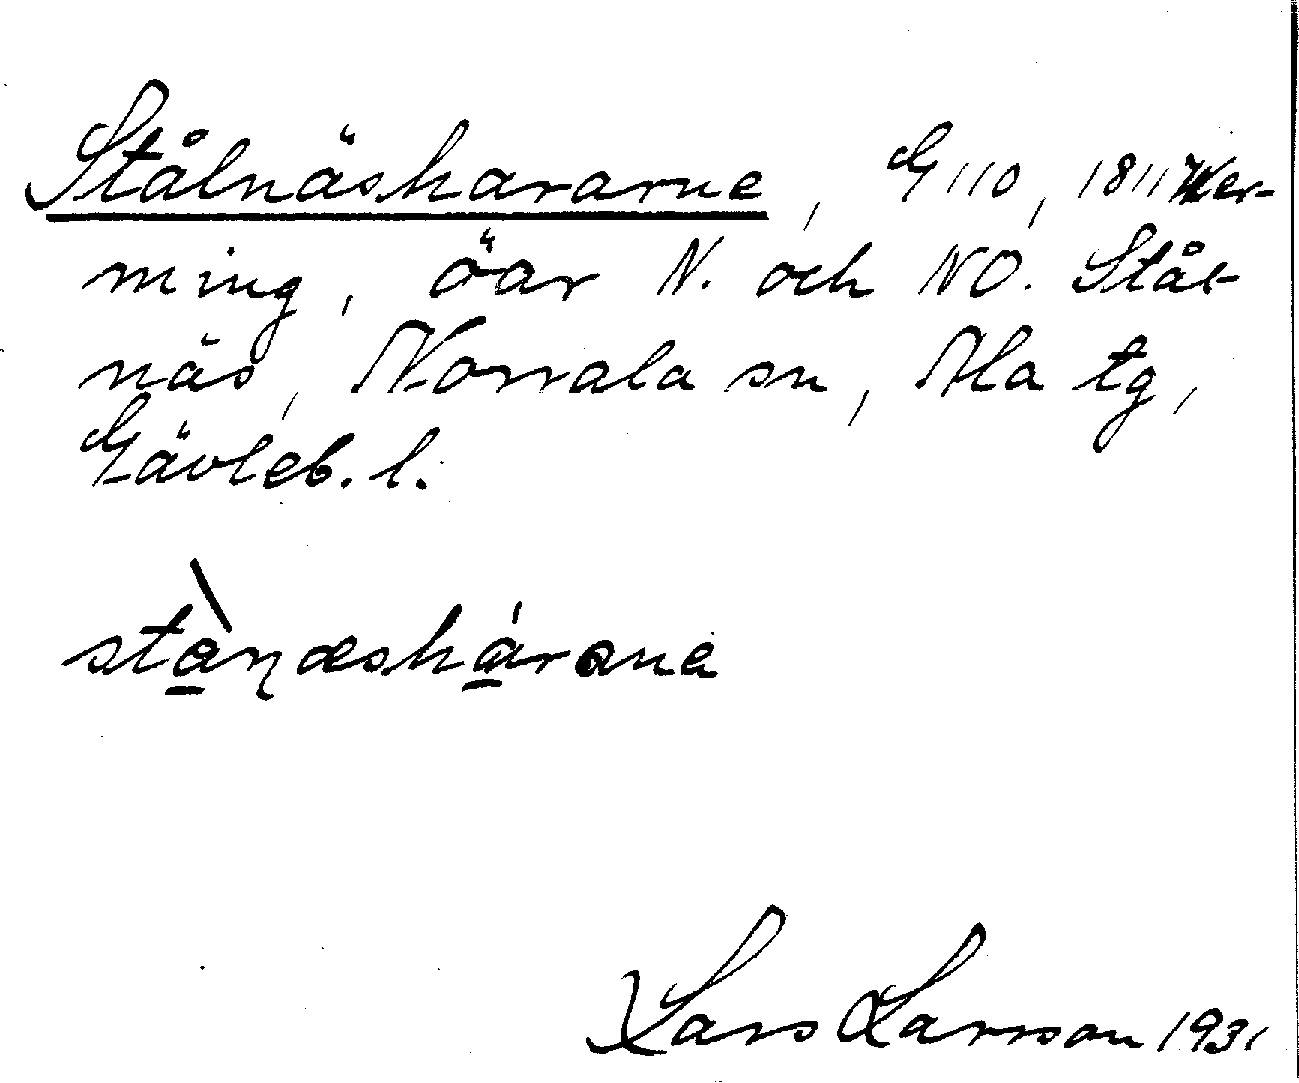 Stålnäshararne, G 110, 1811 Wer-
ming, öar N. och NO. Stål-
näs, Norrala sn, Ala tg,
Gävleb. l.
stànæshárane
Lars Larsson 1931